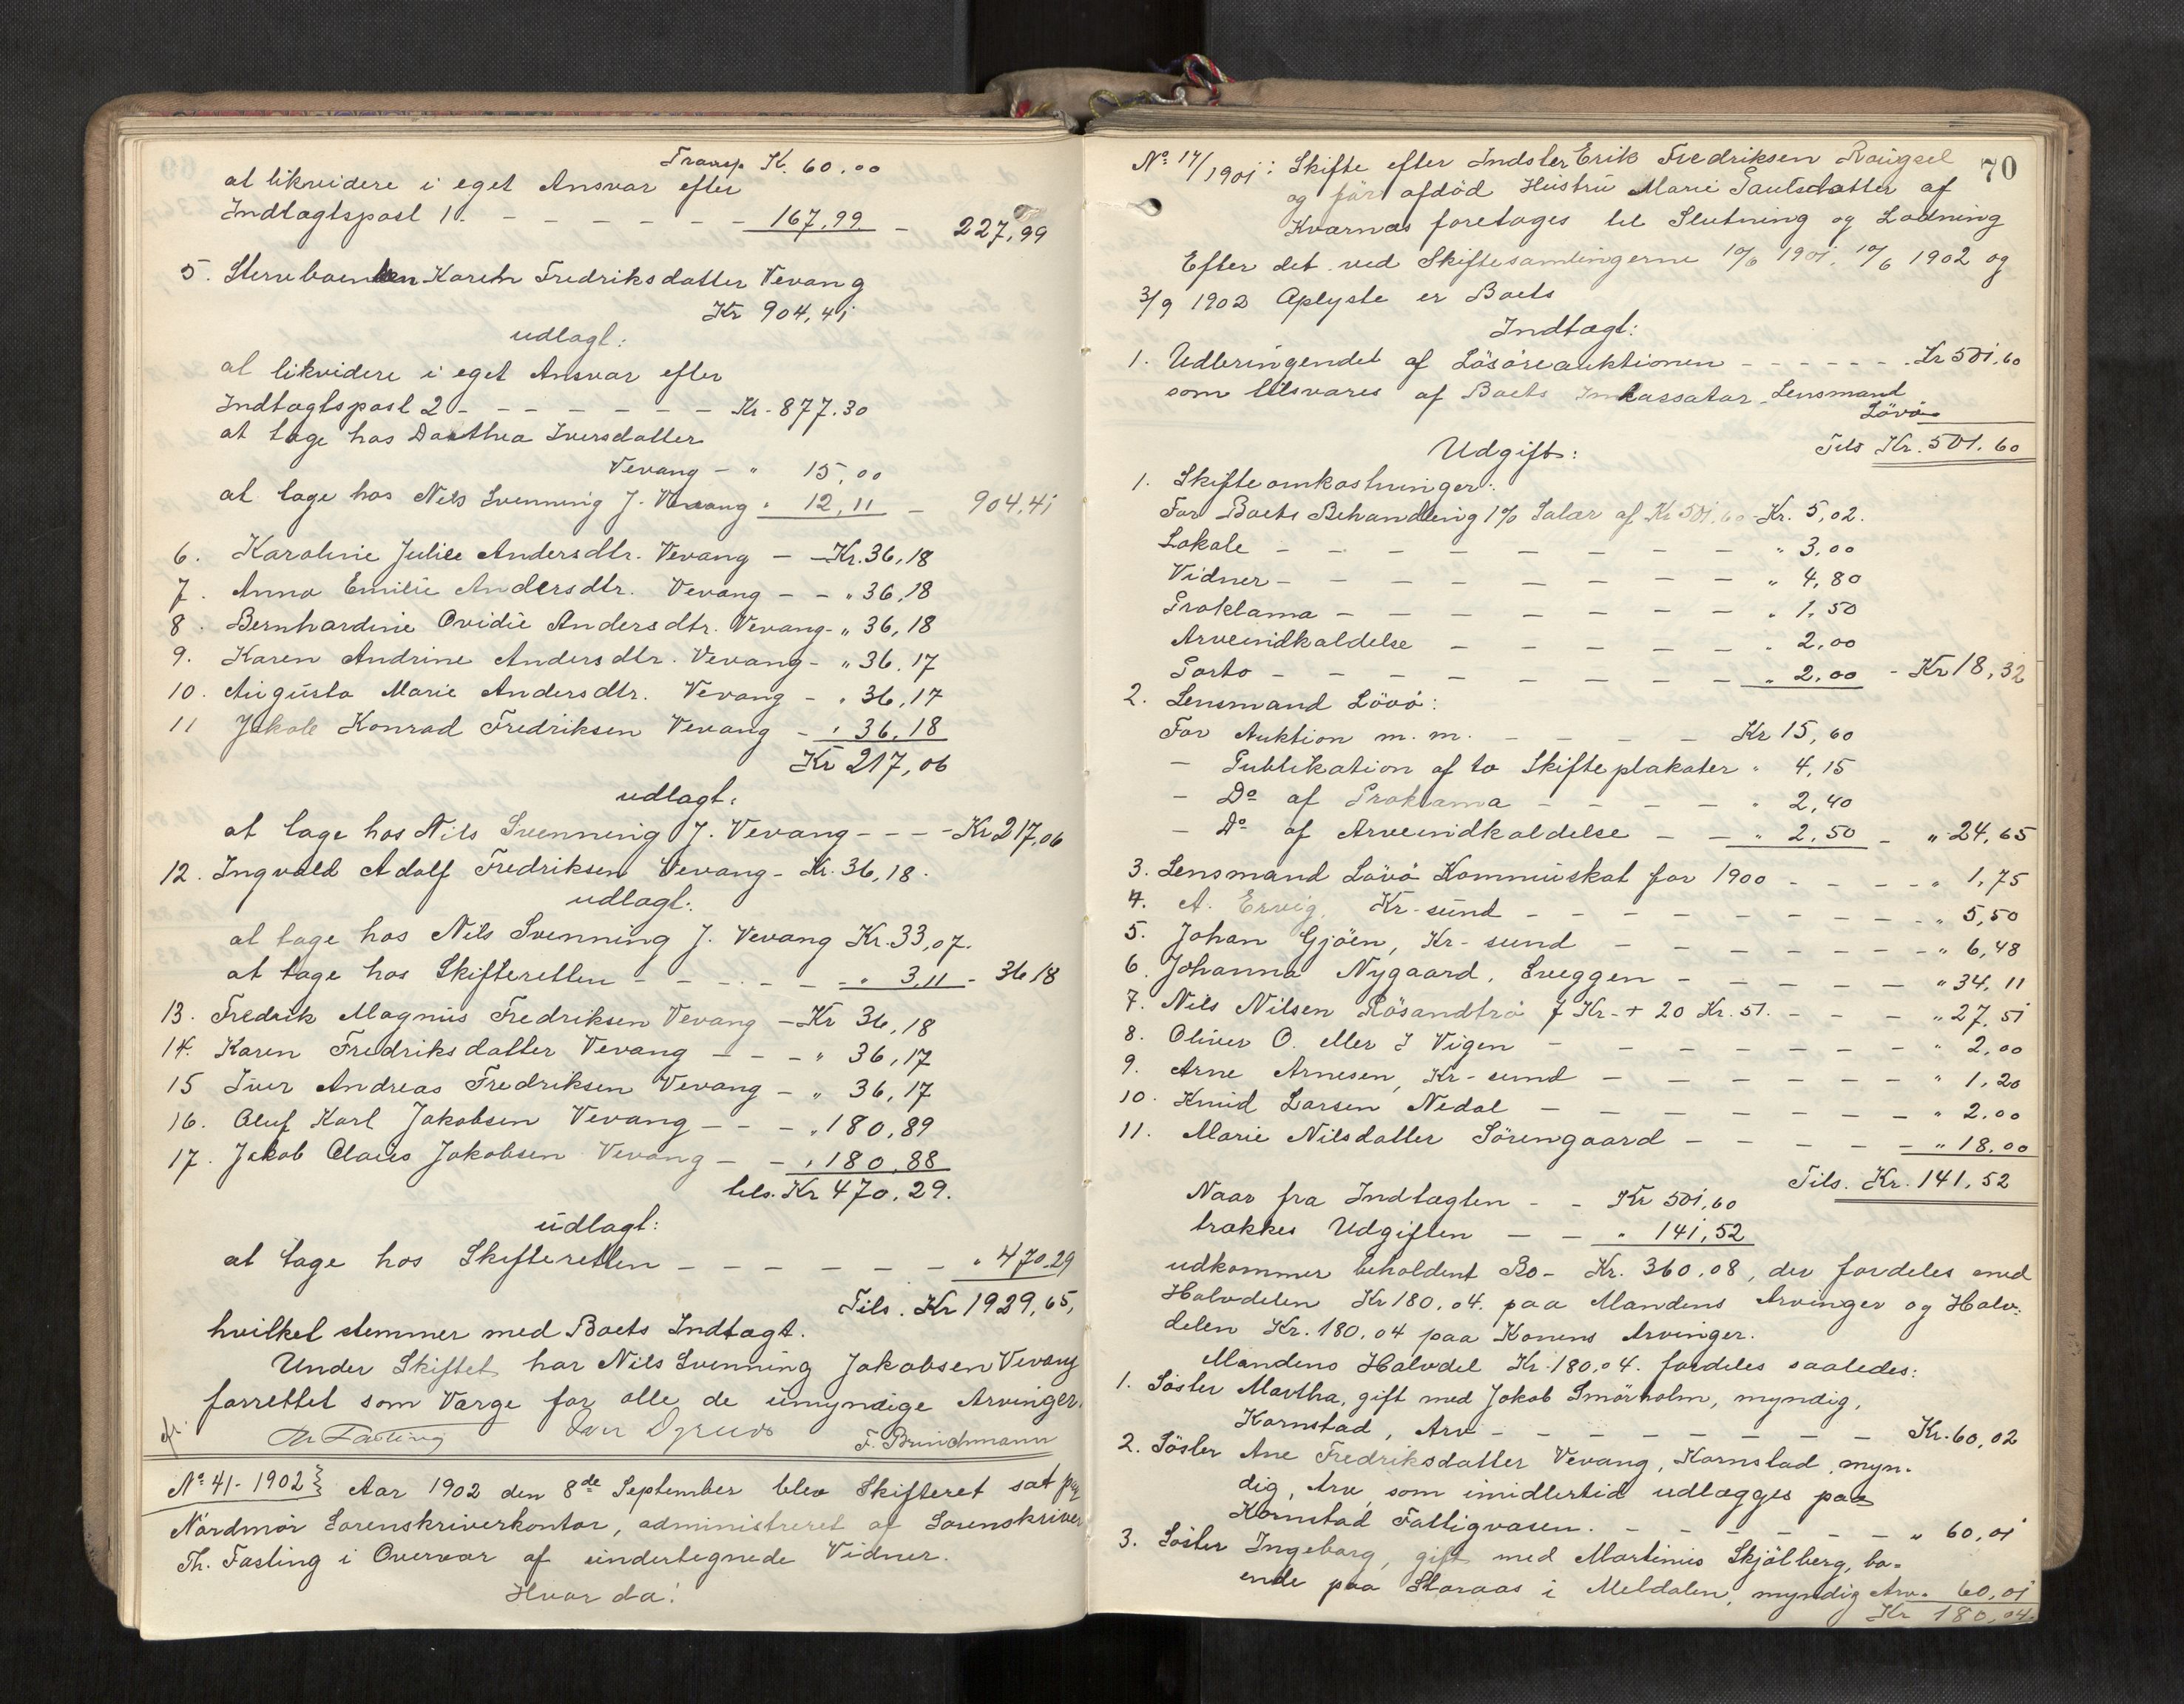 Transp K. 60.00
at likvidere i eget Ansvar efter
Indtægtspost 1. - - - - - - 167,99. - 227,99
5. Stervboenken Karen Fredriksdatter Vevang
Kr 904,41
udlagt:
at likvidere i eget Ansvar efter
Indtægtspost 2 - - - - - - Kr. 877.30
at tage hos Dorthea Iversdatter
Vevang - " 15,00
at tage hos Nils Svenning J. Vevang " 12,11 - 904,41
6. Karoline Julie Andersdtr. Vevang - - Kr. 36,18
7. Anna Emilie Andersdtr. Vevang - - " 36,18
8. Bernhardine Ovidie Andersdtr. Vevang - " 36,18
9. Karen Andrine Andersdtr. Vevang - " 36.17
10. Augusta Marie Andersdtr. Vevang - " 36,17
11 Jakob Konrad Fredriksen Vevang - " 36.18
Kr 217,06
udlagt:
at tage hos Nils Svenning J. Vevang - - - Kr 217,06
12. Ingvald Adolf Fredriksen Vevang - Kr. 36,18.
udlagt:
at tage hos Nils Svenning J. Vevang Kr. 33,07.
at tage hos Skifteretten - - - - - " 3,11 - 36 18
13. Fredrik Magnus Fredriksen Vevang - Kr 36,18
14. Karen Fredriksdatter Vevang - - - " 36,17
15 Iver Andreas Fredriksen Vevang - " 36,17
16. Oluf Karl Jakobsen Vevang - - - " 180,89
17. Jakob Olaus Jakobsen Vevang - - " 180,88
tils. Kr 470,29.
udlagt:
at tage hos Skifteretten - - - - - - " 470.29
Tils. Kr 1929,65,
hvilket stemmer med Boets Indtægt.
Under Skiftet har Nils Svenning Jakobsen Vevang
forrettet som Værge for alle de umyndige Arvinger.
Th Fasling F. Brinchmann
No 41-1902 } Aar 1902 den 8de September blev Skifteret sat paa
Nordmør Sorenskriverkontor, administreret af Sorenskriver
Th. Fasting i Overvær af undertegnede Vidner.
Hvor da:
70
No 17/1901: Skifte efter Indster Erik Fredriksen
og før afdöd Hustru Marie Paulsdatter af
Kvarnes foretages til Slutning og Lodning
Efter det ved Skiftesamlingerne 10/6 1901, 10/6 1902 og
3/9 1902 Oplyste er Boets
Indtægt:
1. Udbringendet af Lösöreauktionen - - - - - - Kr 501.60
som tilsvares af Boets Inkassator Lensmand
Lövö
Tils Kr. 501.60
Udgift:
1. Skifteomkostninger:
For Boets Behandling 1% Salær af Kr 501,60 - Kr. 5,02.
Lokale - - - - - - - - " 3,00
Vidner - - - - - - - - " 4,80
Proklama - - - - - - - " 1,50
Arveindkaldelse - - - - - " 2,00
Porto - - - - - - - - " 2,00 - Kr 18,32
2. Lensmand Lövö:
For Auktion m.m. - - - - Kr 15,60
- Publikation af to Skifteplakater " 4,15
- Do af Proklama - - - - " 2,40
- Do af Arveindkaldelse - - " 2,50 - " 24,65
3. Lensmand Lövö Kommuskat for 1900 - - - - " 1,75
4. A. Ervig, Kr-sund - - - - - - - - " 5,50
5. Johan Gjöen, Kr-sund - - - - - - - " 6,48
6. Johanna Nygaard, Sveggen - - - - - " 34,11
7. Nils Nilsen Rösandtrö 7 Kr. + 20 Kr. 51. - - - " 27,51
8. Oliver O. eller I Vigen - - - - - - - " 2,00
9. Arne Arnesen, Kr-sund - - - - - - " 1,20
10. Knud Larsen Nedal - - - - - - - " 2.00
11. Marie Nilsdatter Sörengaard - - - - - " 18,00
Tils. Kr. 141,52
Naar fra Indtægten - - Kr 501,60
trækkes Udgiften - - " 141,52
udkommer beholdent Bo - Kr. 360.08, der fordeles med
Halvdelen Kr 180,04. paa Mandens Arvinger og Halv-
delen Kr. 180,04 paa Konens Arvinger.
Mandens Halvdel Kr. 180,04. fordeles saaledes:
1. Söster Martha, gift med Jakob Smörholm, myndig,
Kornstad, Arv - - - - - - - - - Kr. 60,02
2. Söster Ane Fredriksdatter Vevang, Kornstad, myn-
dig, Arv, som imidlertid udlægges paa
Kornstad Fattigvæsen. - - - - - - - " 60,01
3. Söster Ingeborg, gift med Martinus Skjölberg, bo-
ende paa Storaas i Meldalen, myndig Arv. 60,01
Kr 180,04.